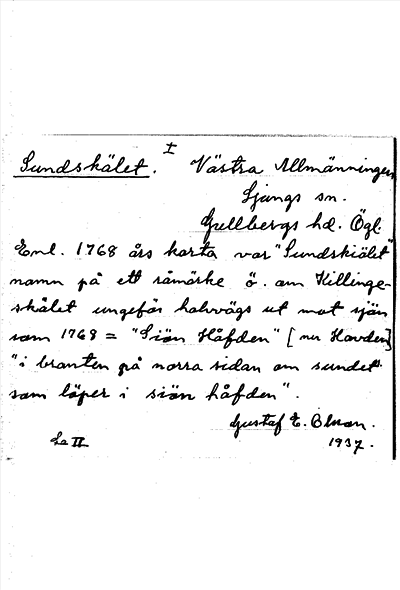 Sundskälet. I Västra Allmänningen
Ljungs sn.
Gullbergs hd. Ögl.
Enl. 1768 års karta var "Sundskiälet"
namn på ett råmärke ö. om Killinge-
skälet ungefär halvvägs ut mot sjön
som 1768 = "Siön Håfden" [nu Hovden]
"i branten på norra sidan om sundet
som löper i siön håfden".
Gustaf E. Olsson.
1937.
La II